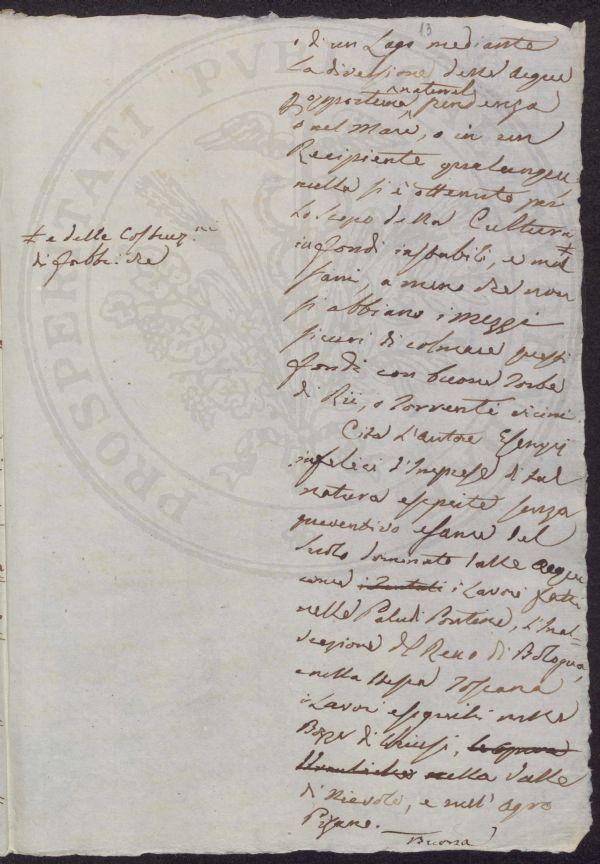 13
o di un Lago mediante
la diversione delle acque
opportuna naturale pendenza
o nel Mare, o in un
Recipiente qualunque
nulla si è ottenuto per
lo scopo della Cultura
in fondi instabili, e mal
sani, a meno che non
si abbiano i mezzi
sicuri di colmare questi
fondi con buone Torbe
di Rii, o Torrenti vicini.
Cita l'autore Esempj
infelici d'Imprese di tal
natura eseguite senza
preventivo esame del
suolo dominato dalle acque
come i Lavori fatti
nelle Paludi Pontine, l'Inal-
veazione del Reno di Bologna,
e nella stessa Toscana
i Lavori eseguiti nelle
Bozze di Chiusi, nella Valle
di Nievole, e nell'agro
Pisano.
Buona
‡ e delle Costruz.ni
di fabbriche
PROSPERITATI PUBLICAE